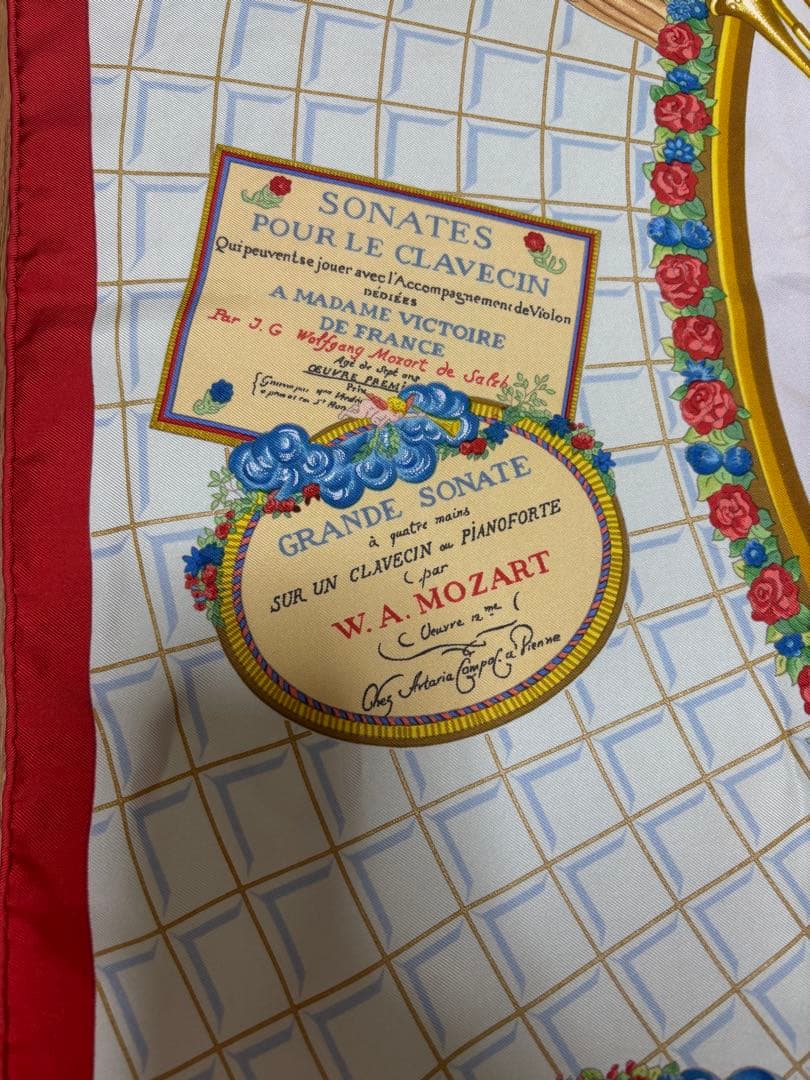 SONATES
POUR LE CLAVECIN
Qui peuvent se jouer avec l'Accompagnement de Violon
DÉDIÉES
A MADAME VICTOIRE
DE FRANCE
Par J. G Wolfgang Mozart de Salzb
Agé de Sept ans
ŒUVRE PREMI
Prix
GRANDE SONATE
à quatre mains
SUR UN CLAVECIN ou PIANOFORTE
par
W. A. MOZART
Oeuvre 12me
Chez Artaria Comp à Vienne